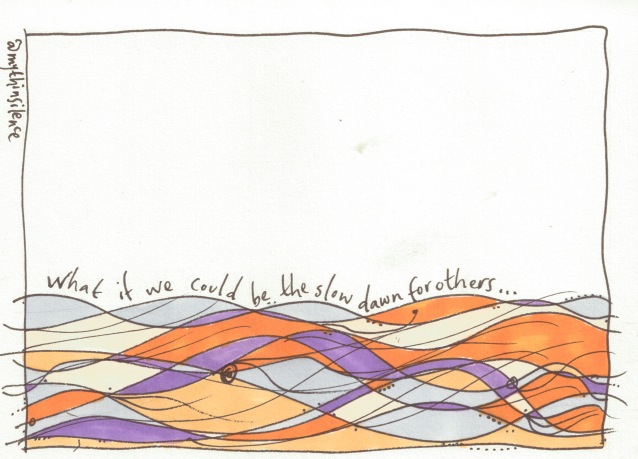 @mythinsilence
What if we could be.. the slow dawn for others...